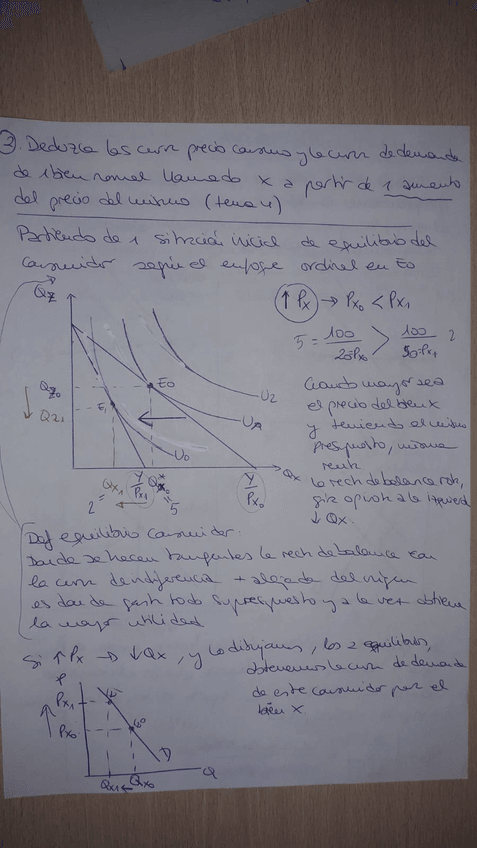 3. Deduzca las curv precio consumo y la curva de demanda
de 1 bien normal llamado X a partir de 1 aumento
del precio del mismo (tema 4)
Partiendo de 1 situación inicial de equilibrio del
consumidor según el enfoque ordinal en E0
Qz
↑ Px → Px0 < Px1
5 = 100 / 20=Px0 > 100 / 50=Px1 2
Qz0
Qz1
E0
E1
U2
U0
Qx
Qx1
Y/Px1
Qx0
Y/Px0
2 =
= 5
Cuando mayor sea
el precio del bien X
y teniendo el mismo
presupuesto, misma
renta
la rect de balance
↓ Qx.
Def equilibrio consumidor.
Donde se hacen tangentes la rect de balance con
la curv de indiferencia + alejada del origen
es donde gasta todo su presupuesto y a la vez obtiene
la mayor utilidad
Si ↑ Px → ↓ Qx, y lo dibujamos, los 2 equilibrios,
obtenemos la curv de demanda
de este consumidor por el
bien X.
P
Px1
Px0
D
Qx1 ← Qx0
Q